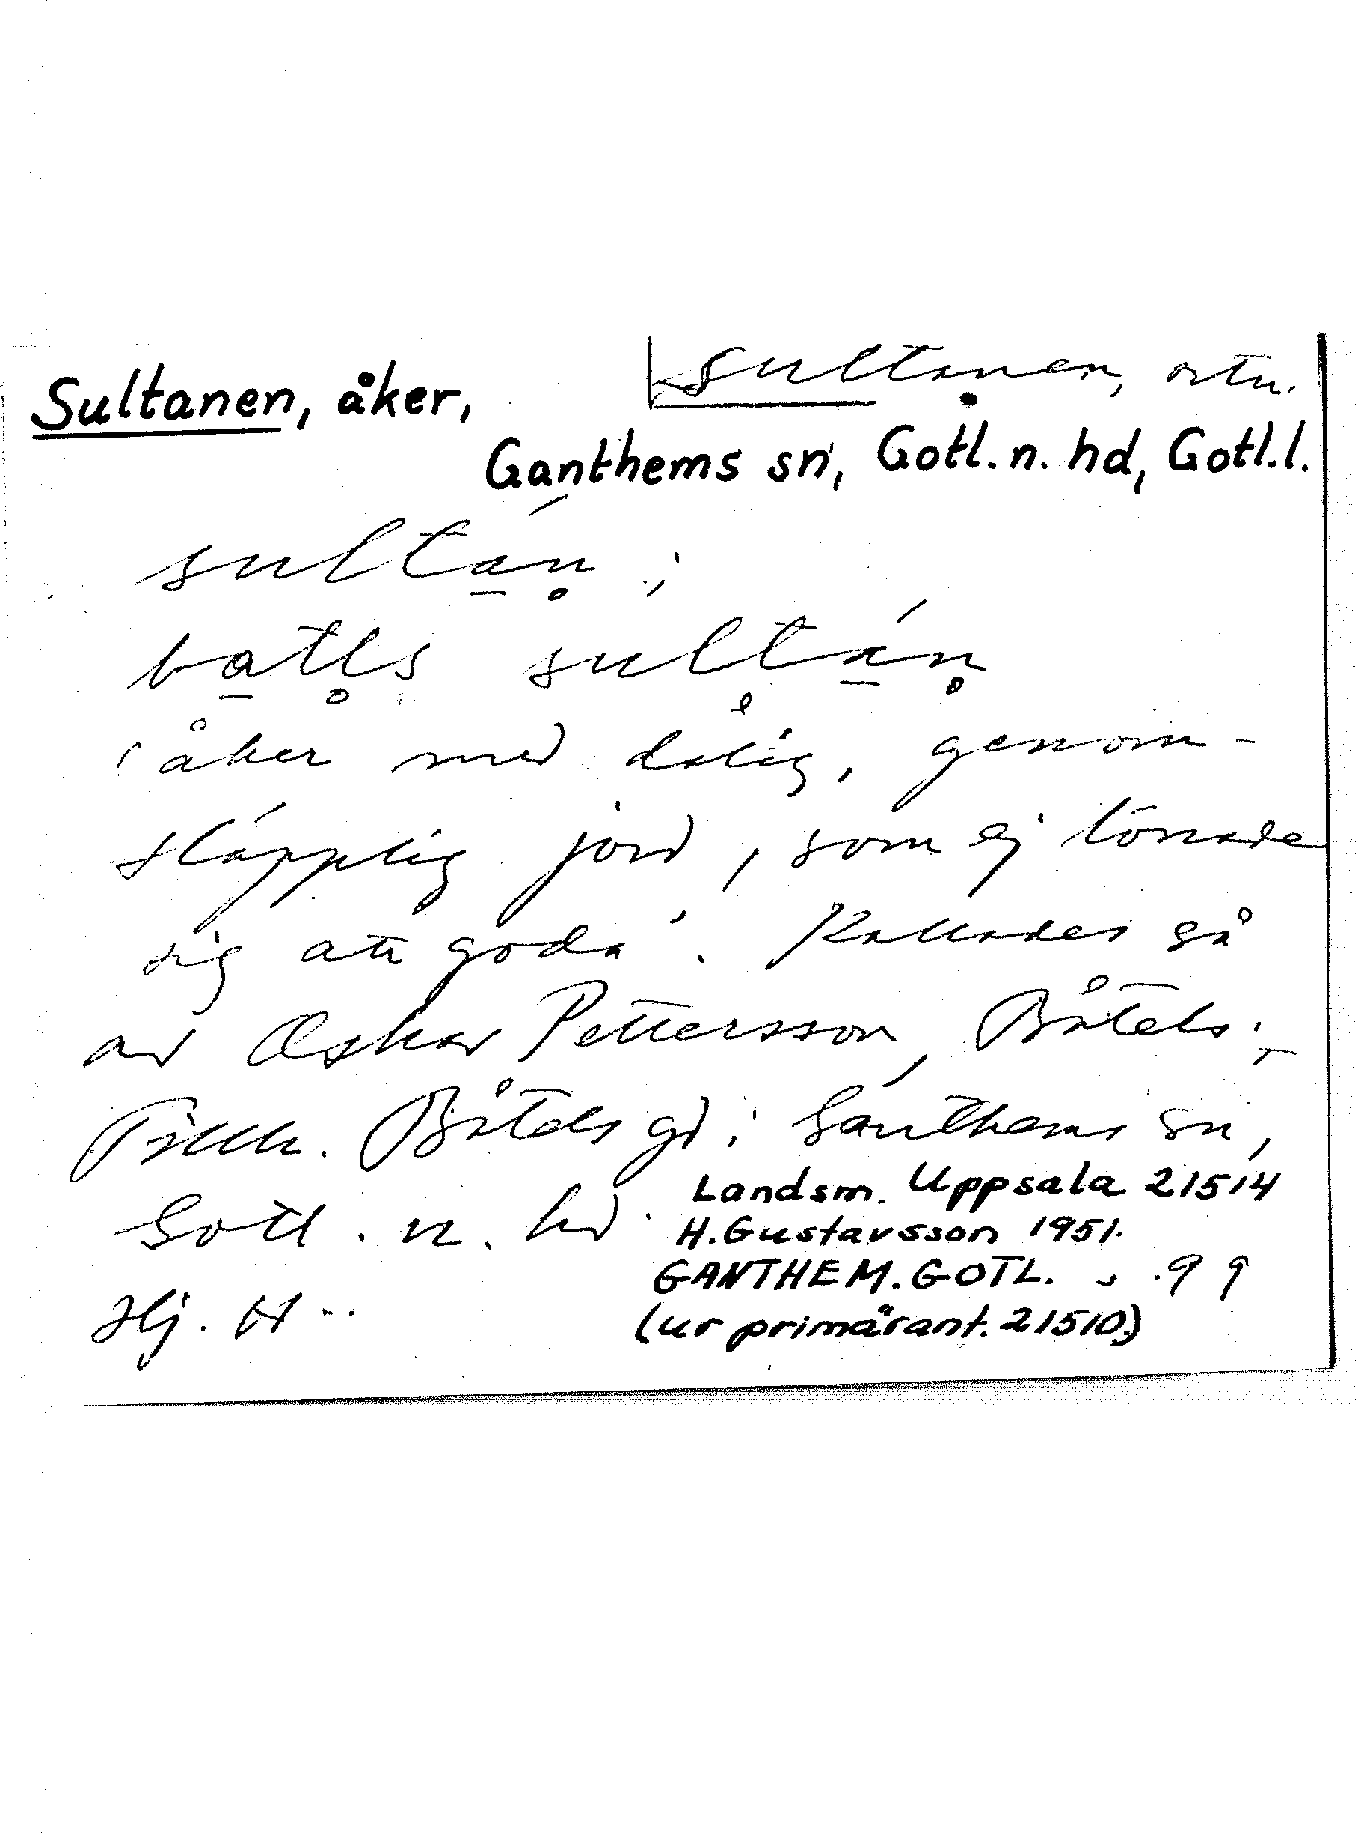 Sultanen, ortn.
Sultanen, åker,
Ganthems sn, Gotl. n. hd, Gotl. l.
sultán ;
batls sultán
'åker med dålig, genom-
släpplig jord, som ej lönade
sig att göda'. Kallades så
av Oskar Pettersson, Båtels.
Tillh. Båtels gd i Ganthems sn,
Gotl. n. hd.
Hj. H..
Landsm. Uppsala 21514
H. Gustavsson 1951.
GANTHEM. GOTL. 99
(ur primärant. 21510)